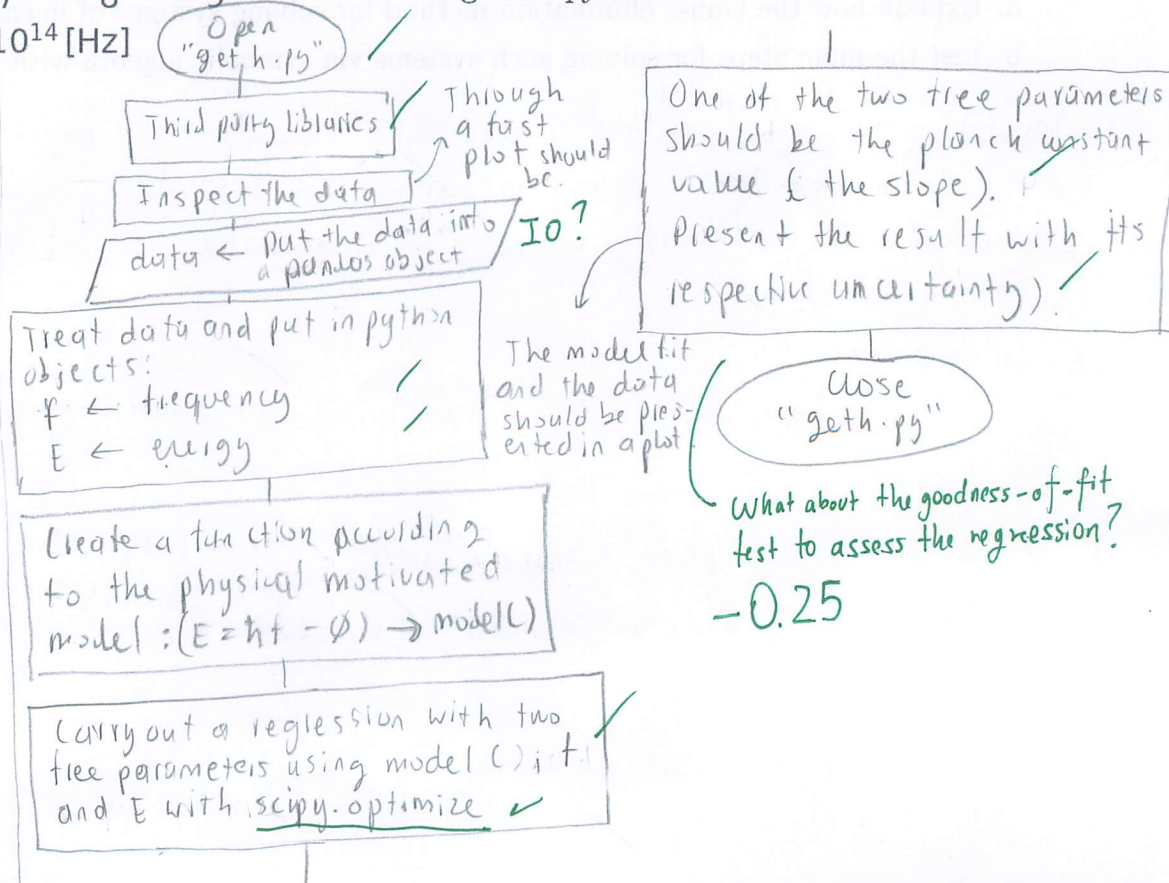 10¹⁴[Hz]
Open
"geth.py"
Third party libraries
Inspect the data
Through
a fast
plot should
be
data ← put the data into
a pandas object
IO?
Treat data and put in python
objects:
f ← frequency
E ← energy
Create a function according
to the physical motivated
model : (E = hf - Ø) → model()
Carry out a regression with two
free parameters using model(), f
and E with scipy.optimize
One of the two free parameters
should be the planck constant
value (the slope).
Present the result with its
respective uncertainty)
The model fit
and the data
should be pres-
ented in a plot
Close
"geth.py"
What about the goodness-of-fit
test to assess the regression?
-0.25